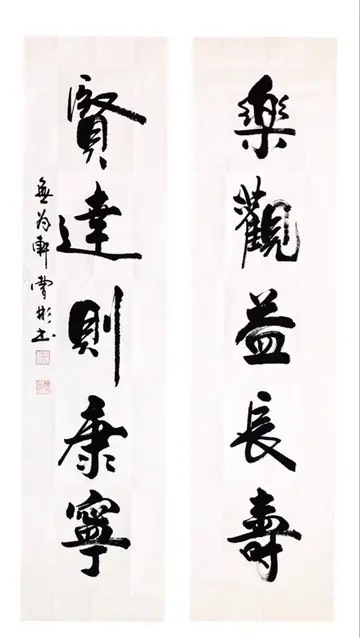 樂觀益長壽
賢達則康寧
無為軒曹彬書